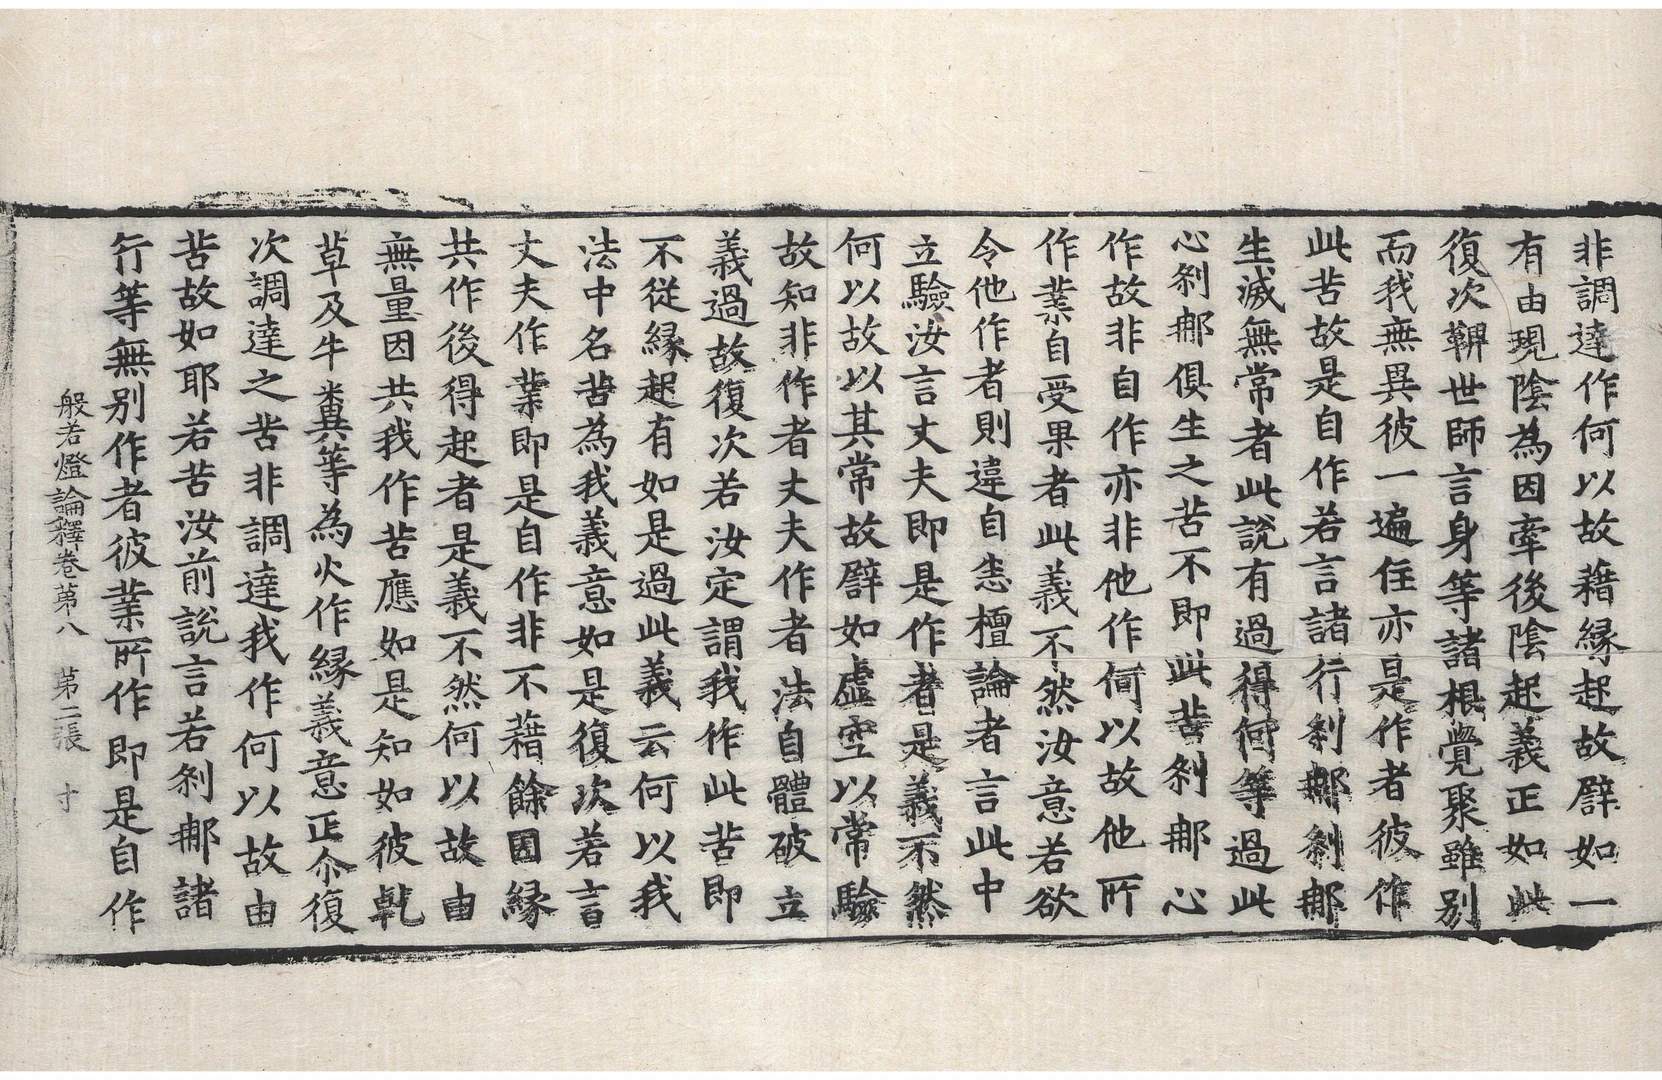 非調達作何以故藉縁起故譬如一
有由現陰為因牽後陰起義正如此
復次鞞世師言身等諸根覺聚雖別
而我無異彼一遍住亦是作者彼作
此苦故是自作若言諸行刹那刹那
生滅無常者此說有過得何等過此
心刹那俱生之苦不即此苦刹那心
作故非自作亦非他作何以故他所
作業自受果者此義不然汝意若欲
令他作者則違自悉檀論者言此中
立驗汝言丈夫即是作者是義不然
何以故以其常故譬如虛空以常驗
故知非作者丈夫作者法自體破立
義過故復次若汝定謂我作此苦即
不從縁起有如是過此義云何以我
法中名苦為我義意如是復次若言
丈夫作業即是自作非不藉餘因縁
共作後得起者是義不然何以故由
無量因共我作苦應如是知如彼乹
草及牛糞等為火作縁義意正尒復
次調達之苦非調達我作何以故由
苦故如耶若苦汝前說言若刹那諸
行等無別作者彼業所作即是自作
般若燈論釋卷第八　第二張　寸